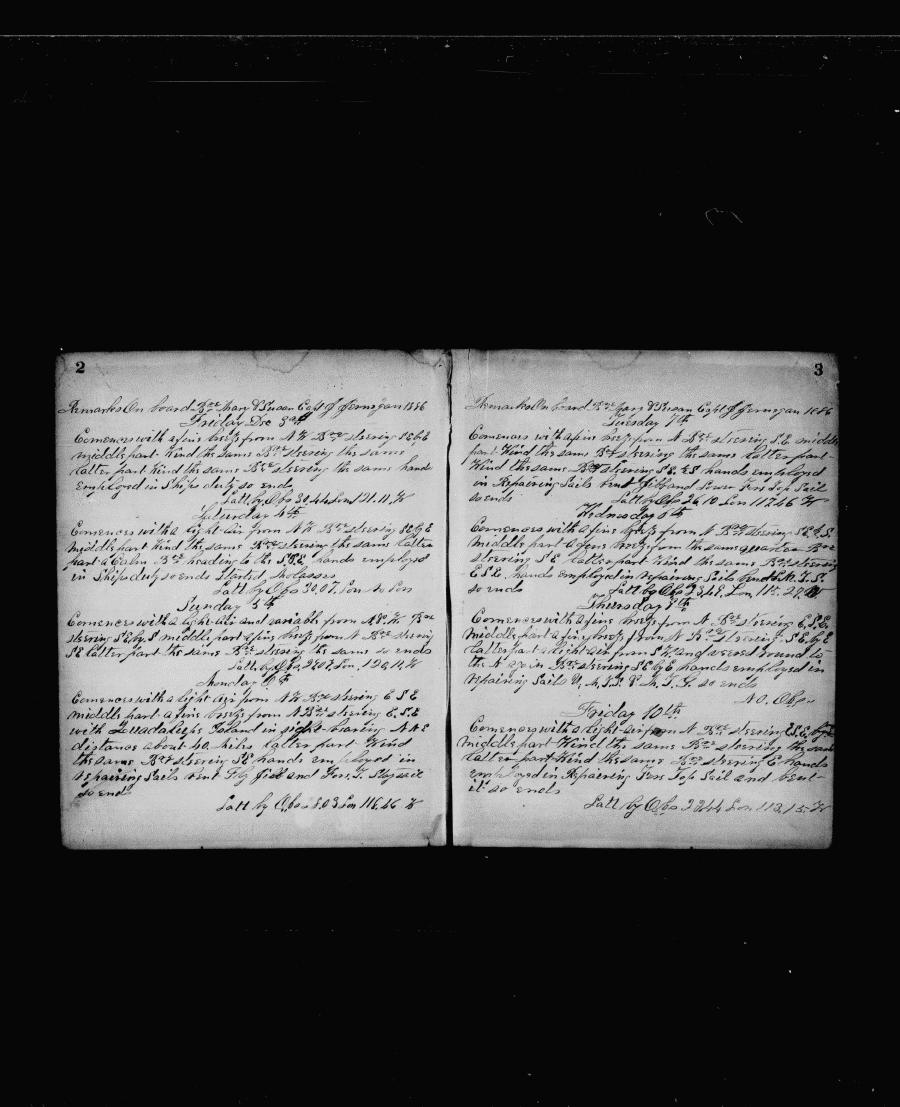 2
Remarks On board Bque Mary & Susan Capt J Jernegan 1886
Friday Dec 3rd
Comences with a fine breeze from N W Bque steering SE by E
middle part Wind the same Bque steering the same
latter part Wind the same Bque steering the same hands
employed in Ships duty so ends
Latt by Obs 30.44 Lon 121.11 W
Saturday 4th
Comences with a light air from N W Bque steering SE by E
Middle part Wind the same Bque steering the same latter
part a Calm Bque heading to the S.E. hands employed
in Ships duty so ends Started Molasses
Latt by Obs 30.07. Lon No Lon
Sunday 5th
Comences with a light air and variable from Bque
steering SE by S middle part a fine breeze from N Bque steering
SE latter part the same Bque steering the same so ends
Latt by Obs Lon W
Monday 6th
Comences with a light air from N W Bque steering E S E
middle part a fine breeze from N Bque steering E.S.E
with Guadaleupe Island in sight bearing N N E
distance about 40 miles latter part Wind
the same Bque steering SE hands employed in
repairing Sails bent Fly Jibb and For. T. Staysail
so ends
Latt by Obs Lon 116.46 W
3
Remarks On board Bque Mary & Susan Capt J Jernegan 1886
Tuesday 7th
Comences with a fine breeze from N Bque steering S.E. middle
part Wind the same Bque steering the same latter part
Wind the same Bque steering hands employed
in Repairing Sails bent Jib and Lower Fore Top Sail
so ends Latt by Obs 26.10 Lon 117.46 W
Wednesday 8th
Comences with a fine breeze from N Bque steering
Middle part a fine breeze from the same quarter Bque
steering S E latter part Wind the same Bque steering
E S E. hands employed in repairing Sails bend
so ends Latt by Obs Lon 115.29 W
Thursday 9th
Comences with a fine breeze from N Bque steering E.S.E.
Middle part a fine breeze from N Bque steering S.E. by E
latter part a light air from S W. and veered round to
the N again Bque steering SE by E hands employed in
repairing Sails so ends
No. Obs
Friday 10th
Comences with a light air from N Bque steering
Middle part Wind the same Bque steering the same
latter part Wind the same Bque steering E hands
employed in Repairing Fore Top Sail and bent
it so ends
Latt by Obs 22.44 Lon 113.15 W